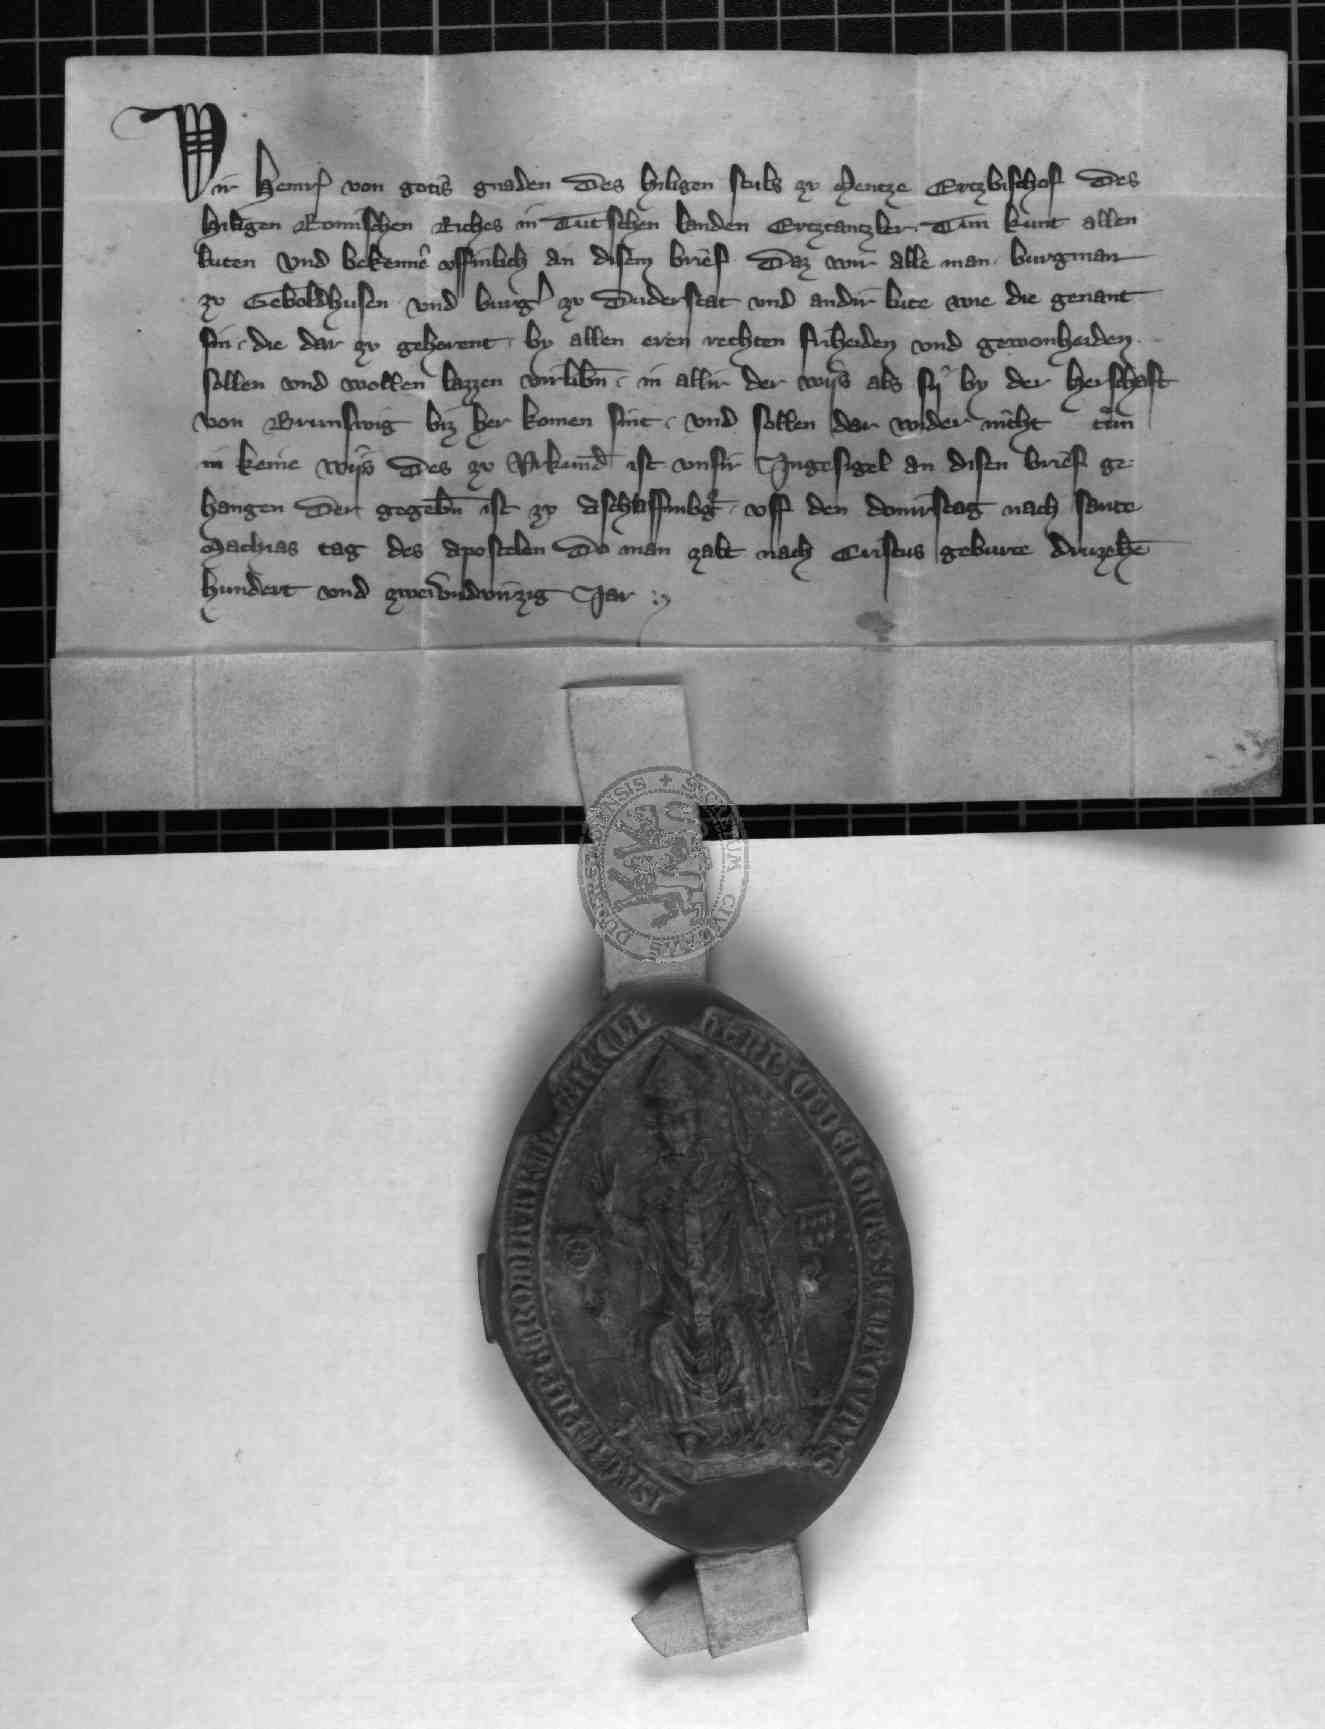 Wir Heinr von gotis gnaden Des hiligen stuls zu Mentze Ertzbischof Des
hiligen Romischen Riches in Tutschen landen Ertzcantzler. Tun kunt allen
luten vnd bekenne vffinlich an disem brief. Daz wir alle man. burgman
zu Geboldhusen vnd burg zu Duderstat vnd andir lute wie die genant
sin. die dar zu gehorent. by allen eren rechten friheiden vnd gewonheiden.
sollen vnd wollen lazzen virlibn. in allir der wijs als sij by der herschaft
von Brunswig biz her komen sint. vnd sollen dar wider nicht tun
in keine wijs Des zu Vrkund ist vnsir Ingesigel an disen brief ge-
hangen Der gegebn ist zu Aschaffinbg. vff den donirstag nach sante
Mathias tag des apostelen Do man zalt nach Cristus geburte druzehe
hundert vnd zweivndvirzig Jar
SECRETUM CIVITATIS DUDERSTADENSIS